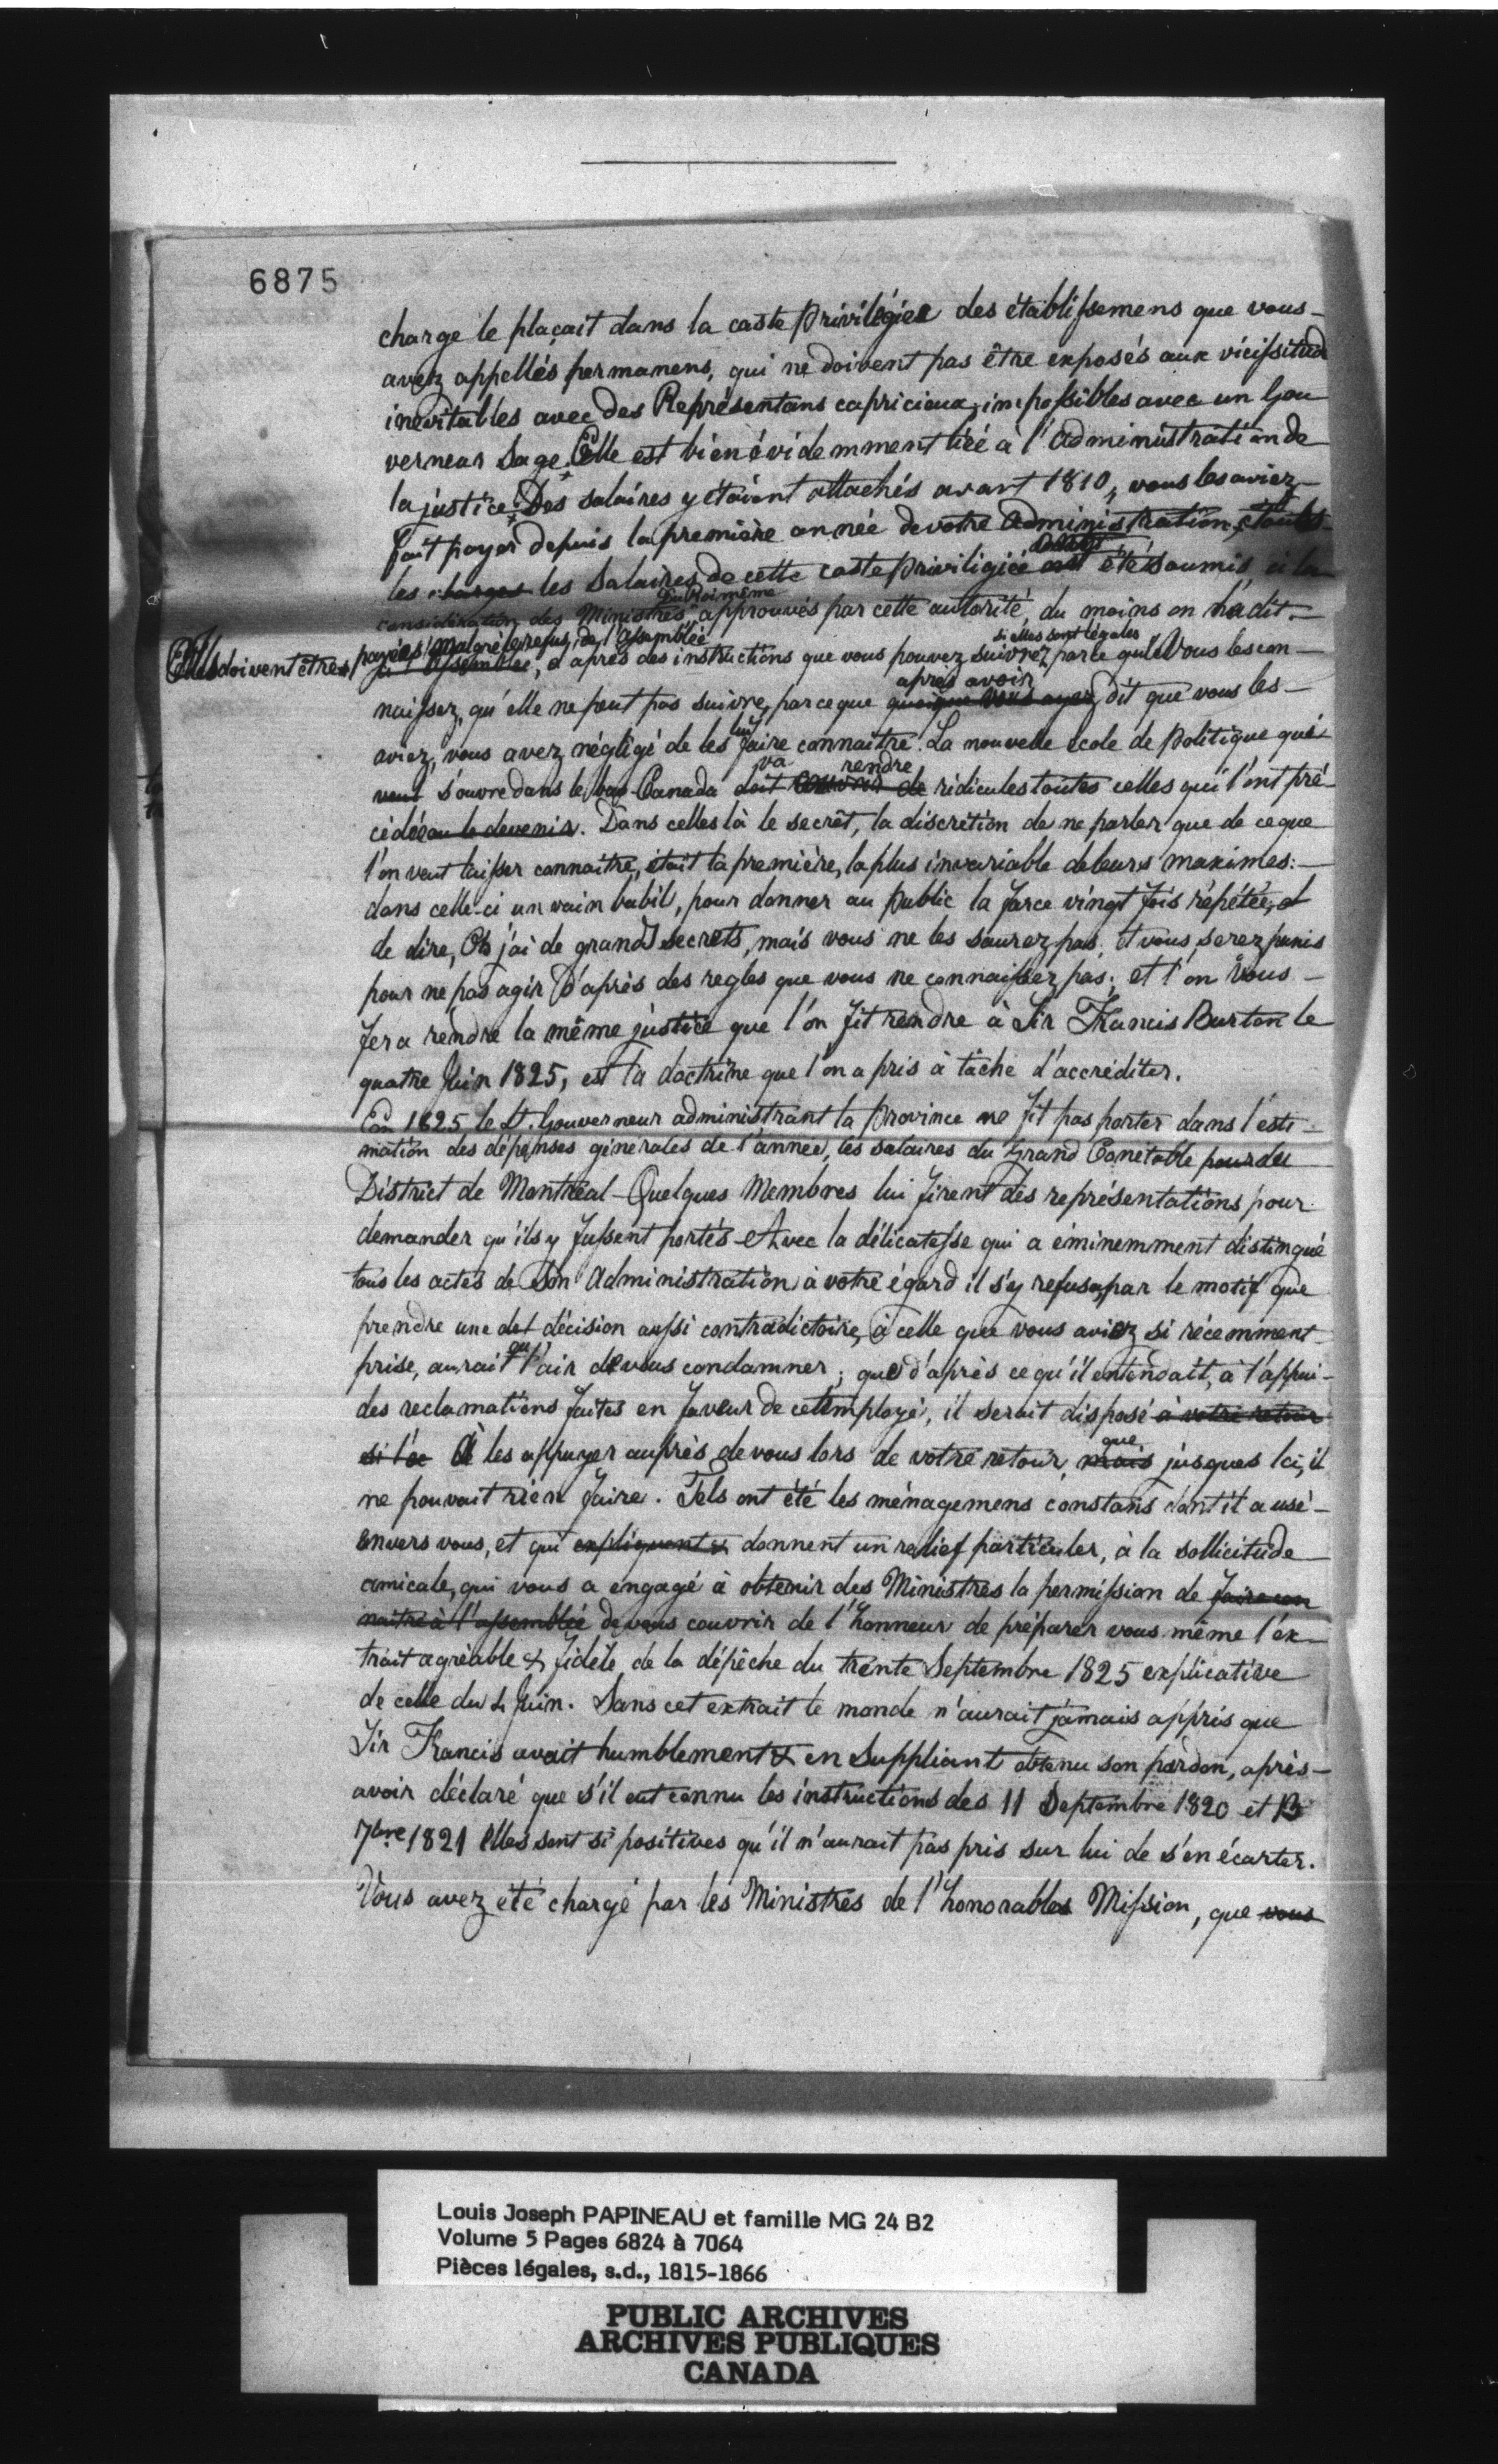 6875
charge le plaçait dans la caste privilégiée des établissemens que vous
avez appellés permanens, qui ne doivent pas être exposés aux vicissitud
inévitables avec des Représentans capricieux, impossibles avec un Gou
verneur Sage. Elle est bien évidemment liée à l'administration de
la justice. Des salaires y étaient attachés avant 1810, vous les aviez
fait payer depuis la première année de votre administration, toutes
les charges les Salaires de cette caste priviligiée ont été soumis à la
du Roi même
considération des Ministres approuvés par cette autorité, du moins on l'a dit.
Elles doivent êtres payées malgré le refus de l'assemblée
si elles sont légales
l'Assemblée, d'après des instructions que vous pouvez suivre, parce que Vous les con
après avoir
naissez, qu'elle ne peut pas suivre, parce que quoique vous ayez dit que vous les
lui
aviez, vous avez négligé de les faire connaitre. La nouvelle école de politique qui
va rendre
veut s'ouvre dans le bas Canada doit couvrir de ridicules toutes celles qui l'ont pré
cédée ou le devenir. Dans celles là le secrêt, la discrétion de ne parler que de ce que
l'on veut laisser connaitre, était la première, la plus invariable de leurs maximes:
dans celle-ci un vain babil, pour donner au public la farce vingt fois répétée, et
de dire, Oh j'ai de grands secrets, mais vous ne les saurez pas, et vous serez punis
pour ne pas agir d'après des regles que vous ne connaissez pas; et l'on vous
fera rendre la même justice que l'on fit rendre à Sir Francis Burton le
quatre Juin 1825, est la doctrine que l'on a pris à tâche d'accréditer.
En 1825 le Lt. Gouverneur administrant la province ne fit pas porter dans l'esti
mation des dépenses générales de l'année, les salaires du Grand Conétable pour le
District de Montréal - Quelques Membres lui firent des représentations pour
demander qu'ils y fussent portés - Avec la délicatesse qui a éminemment distingué
tous les actes de Son Administration à votre égard il s'y refusa, par le motif que
prendre une det décision aussi contradictoire, à celle que vous aviez si récemment
eu
prise, aurait l'air de vous condamner; que d'après ce qu'il entendait, à l'appui
des reclamations faites en faveur de cet Employé, il serait disposé à votre retour
que
si l'oc à les appuyer auprès de vous lors de votre retour, mais jusques ici, il
ne pouvait rien faire. Tels ont été les ménagemens constans dont il a usé
envers vous, et qui expliquent & donnent un relief particuler, à la sollicitude
amicale, qui vous a engagé à obtenir des Ministres la permission de faire con
naitre à l'assemblée de vous couvrir de l'honneur de préparer vous même l'ex
trait agréable & fidèle de la dépêche du trente Septembre 1825 explicative
de celle du 4 Juin. Sans cet extrait le monde n'aurait jamais appris que
Sir Francis avait humblement & en Suppliant obtenu son pardon, après
avoir déclaré que s'il eut connu les instructions des 11 Septembre 1820 et 13
7bre 1821 elles sont si positives qu'il n'aurait pas pris sur lui de s'en écarter.
Vous avez été chargé par les Ministres de l'honorables Mission, que vous
Louis Joseph PAPINEAU et famille MG 24 B2
Volume 5 Pages 6824 à 7064
Pièces légales, s.d., 1815-1866
PUBLIC ARCHIVES
ARCHIVES PUBLIQUES
CANADA